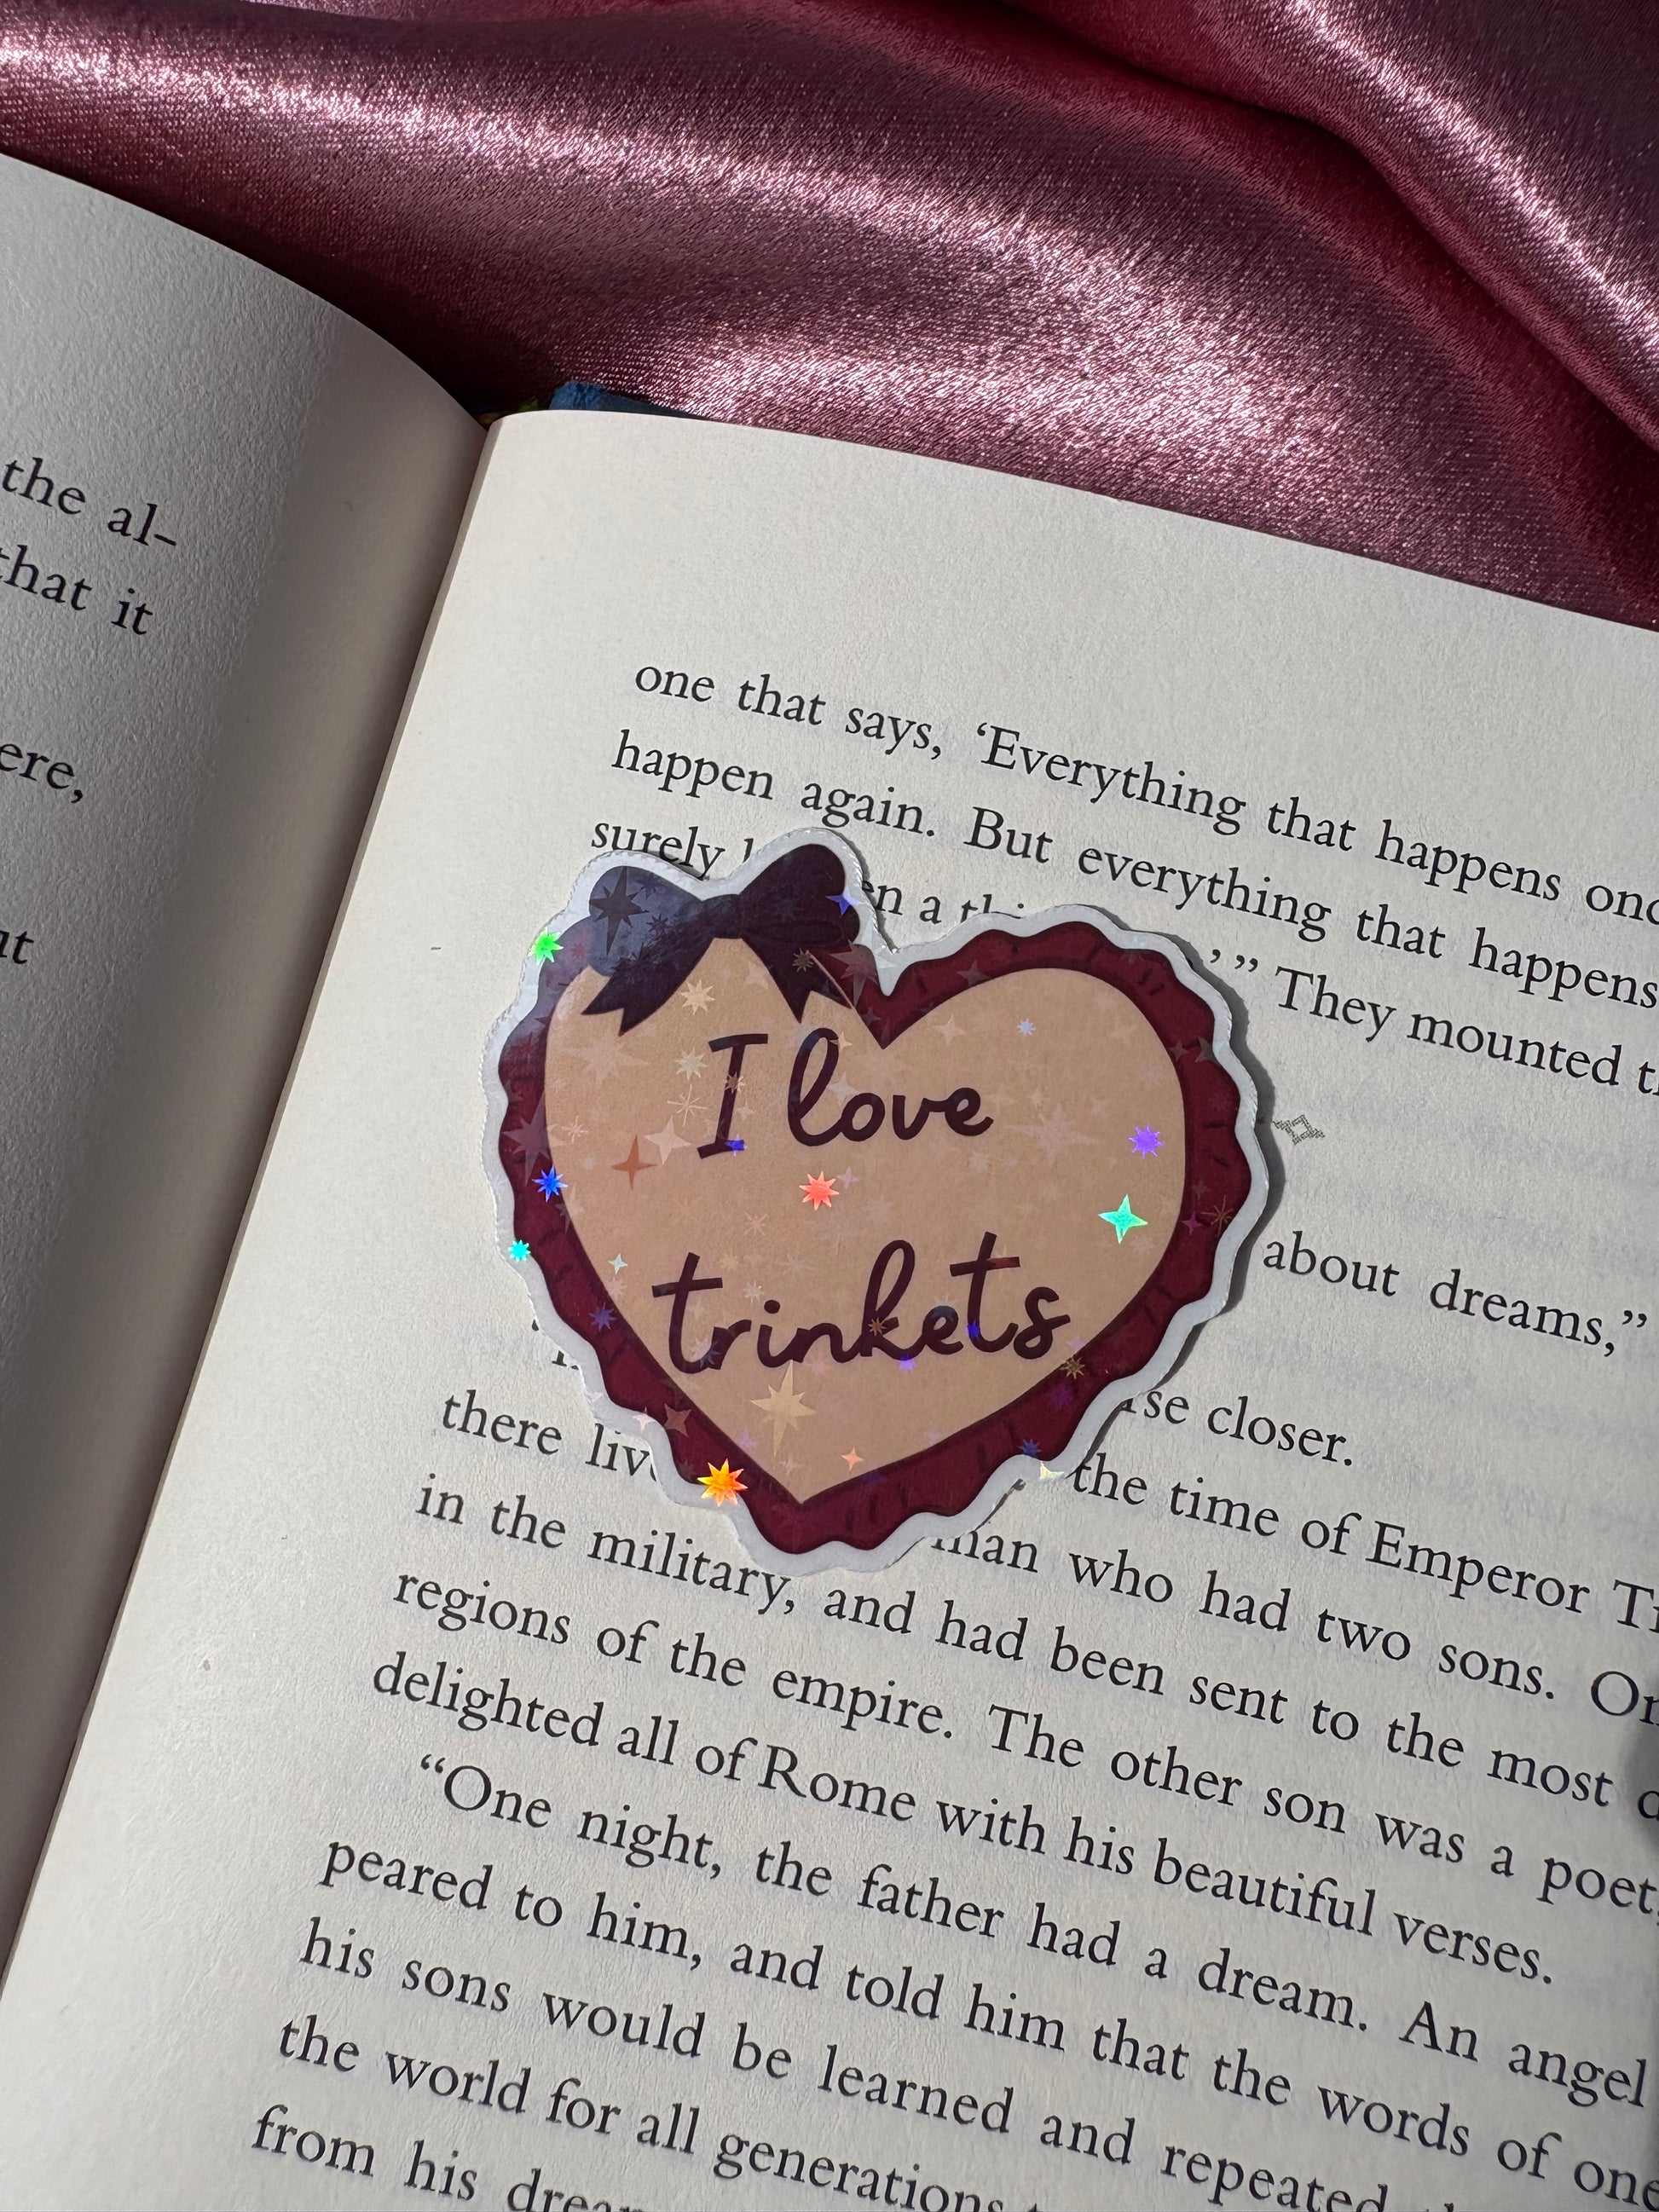 the al-
that it
ere,
ut
one that says, ‘Everything that happens onc
happen again. But everything that happens
surely
en a thi
’ ” They mounted t
I love
trinkets
about dreams,”
rse closer.
there liv the time of Emperor Ti
man who had two sons. On
in the military, and had been sent to the most d
regions of the empire. The other son was a poet,
delighted all of Rome with his beautiful verses.
“One night, the father had a dream. An angel
peared to him, and told him that the words of one
his sons would be learned and repeated
the world for all generations
from his drea